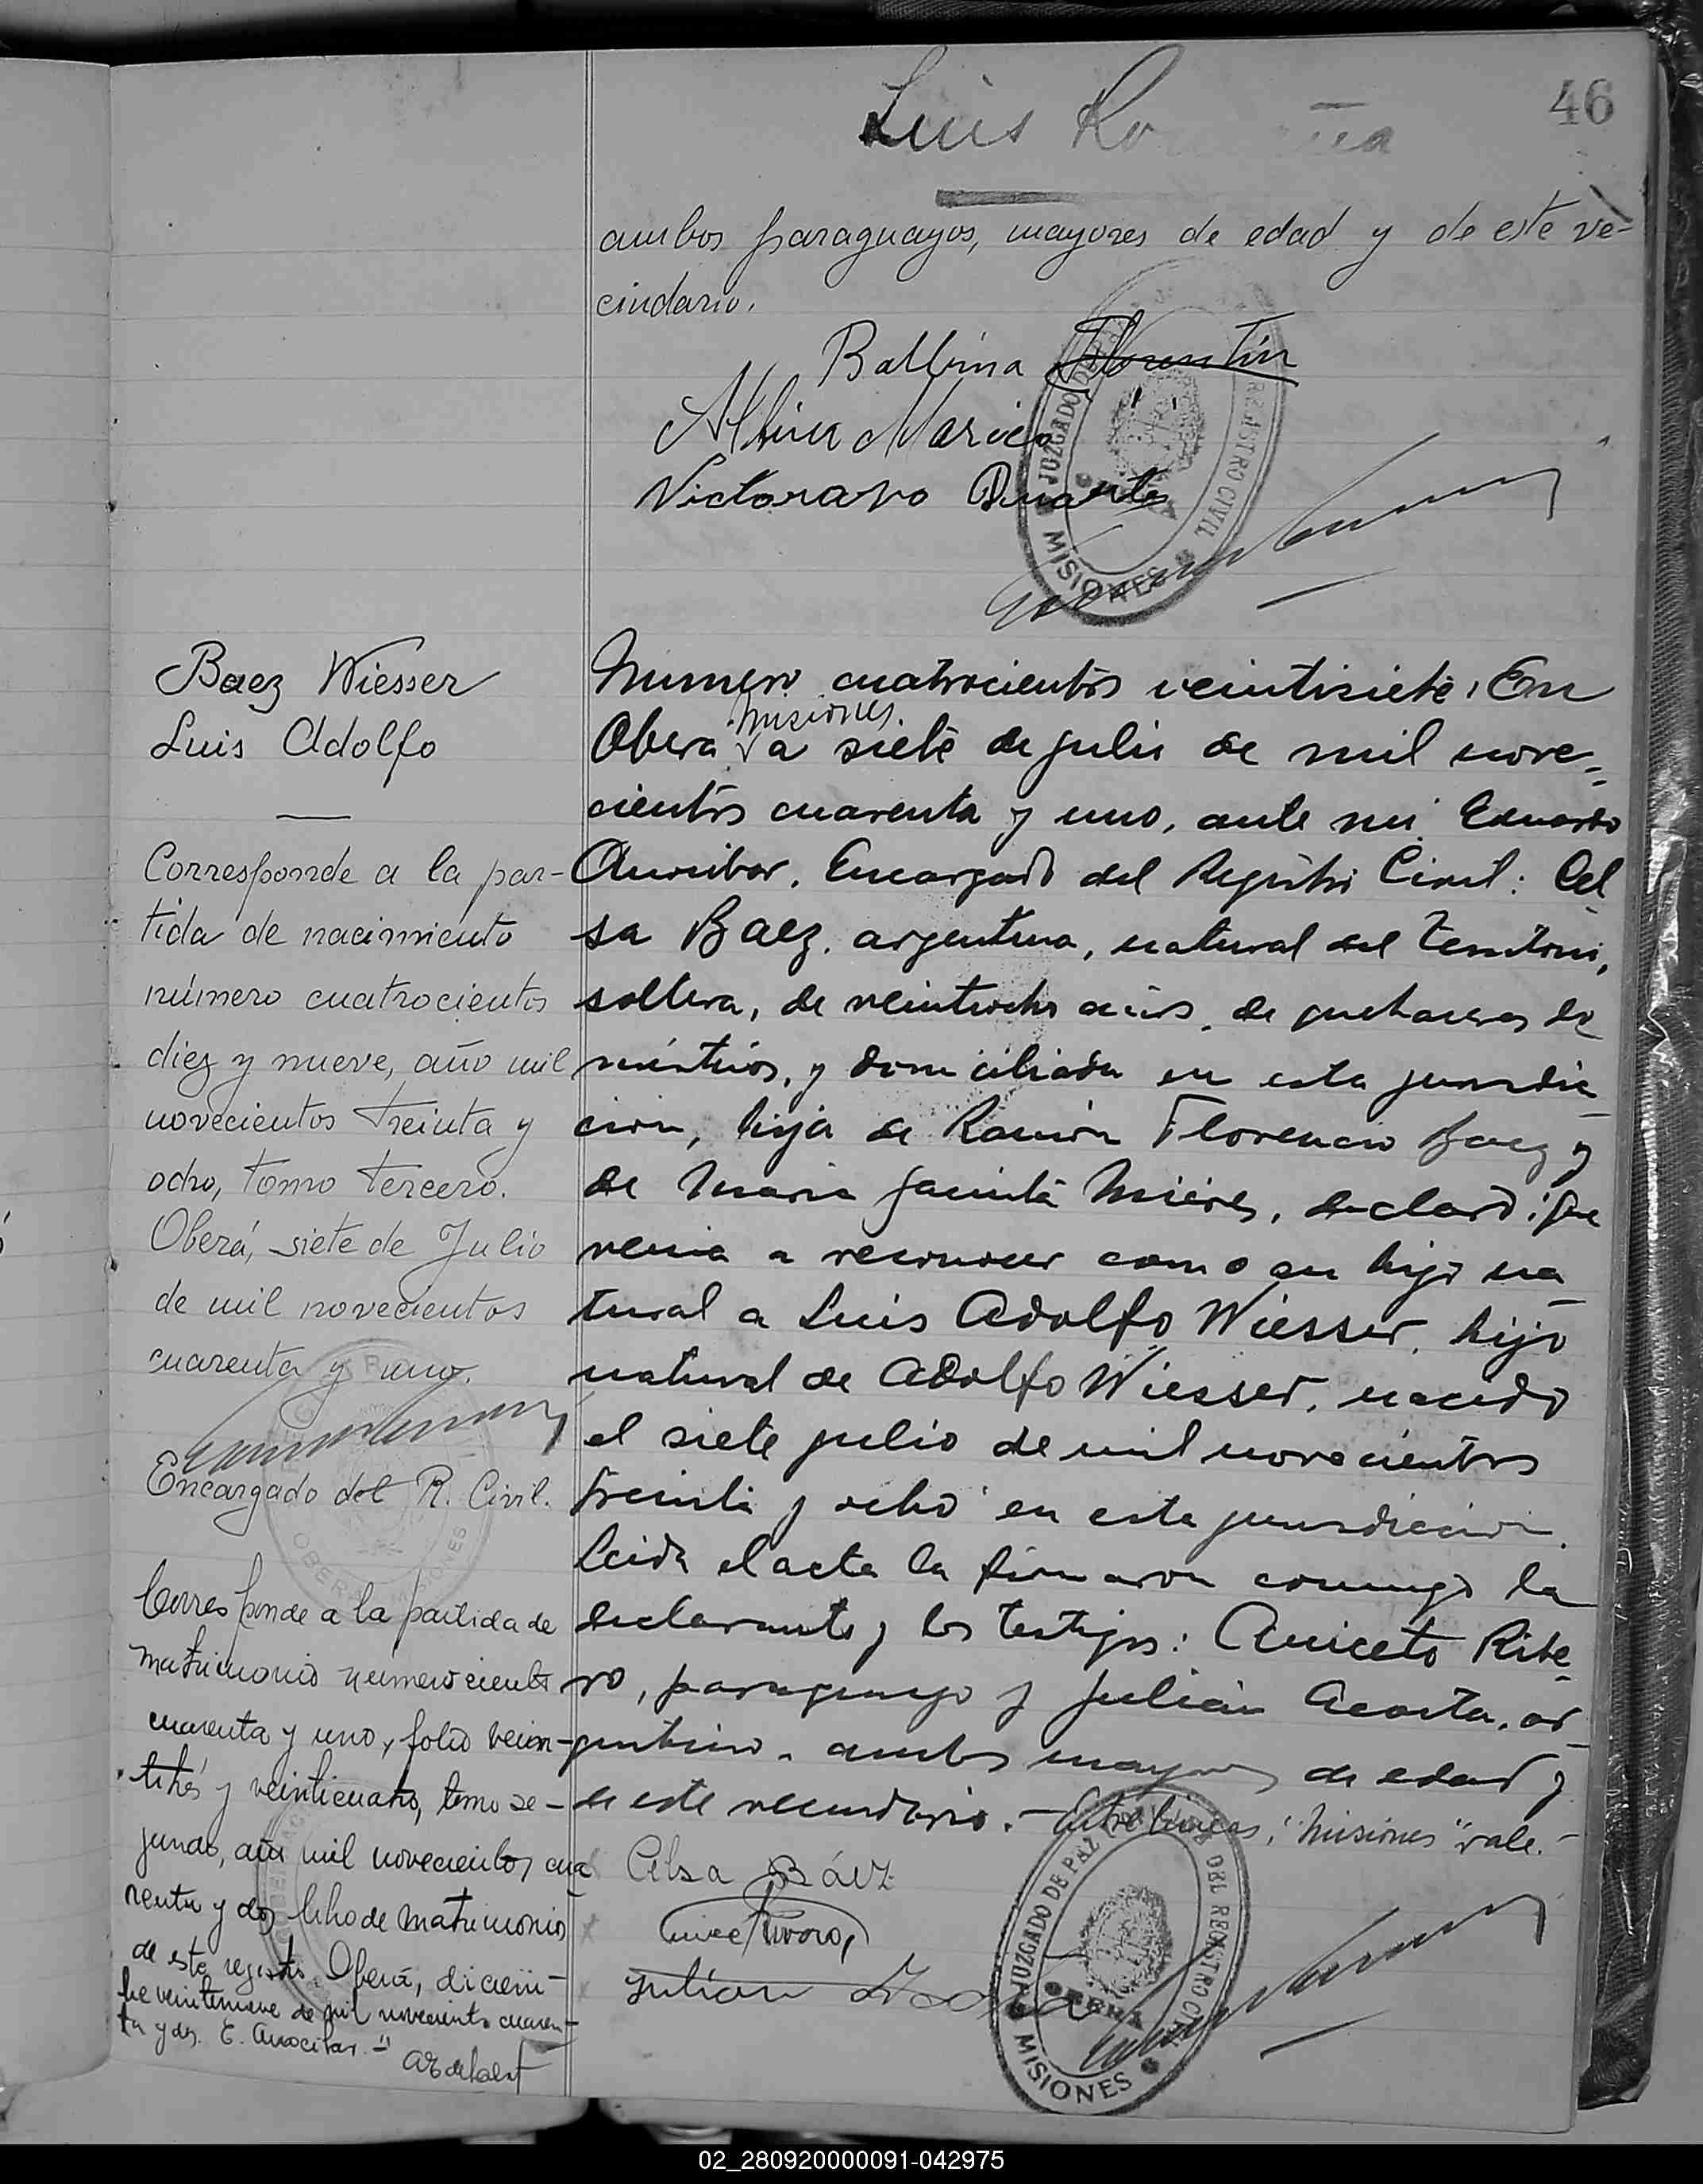 46
Luis
ambos paraguayos, mayores de edad y de este ve-
cindario.
Balbina Florentín
Albina
Victoriano Duarte
JUZGADO DE PAZ
REGISTRO CIVIL
OBERA
MISIONES
Baez Wiesser
Luis Adolfo
Corresponde a la par-
tida de nacimiento
número cuatrocientos
diez y nueve, año mil
novecientos treinta y
ocho, tomo tercero.
Oberá, siete de Julio
de mil novecientos
cuarenta y uno.
Encargado del R. Civil.
OBERA MISIONES
Corresponde a la partida de
matrimonio numero ciento
cuarenta y uno, folio vein-
titrés y veinticuatro, tomo se-
gundo, año mil novecientos cua
renta y dos, libro de matrimonios
de este registro. Oberá, diciem-
bre veintenueve de mil novecientos cuaren-
ta y dos. E.
Numero cuatrocientos veintisiete. En
Misiones.
Obera a siete de julio de mil nove-
cientos cuarenta y uno, ante mi Eduardo
Encargado del Registro Civil: Cel
sa Baez, argentina, natural del Territorio,
soltera, de veintiocho años, de quehaceres do
mésticos, y domiciliada en esta jurisdic
ción, hija de Ramón Florencio Baez y
de Maria Jacinta Mieres, declaró: Que
venia a reconocer como su hijo na
tural a Luis Adolfo Wiesser, hijo
natural de Adolfo Wiesser, nacido
el siete julio de mil novecientos
treinta y ocho en esta jurisdicción.
Leida el acta la firmaron conmigo la
declarante y los testigos: Aniceto Rive
ro, paraguayo y Julián Acosta, ar
gentino, ambos mayores de edad y
de este vecindario.- Entre lineas: "Misiones" vale.-
Celsa Báez
Julián
JUZGADO DE PAZ
DEL REGISTRO CIVIL
OBERA
MISIONES
02_280920000091-042975